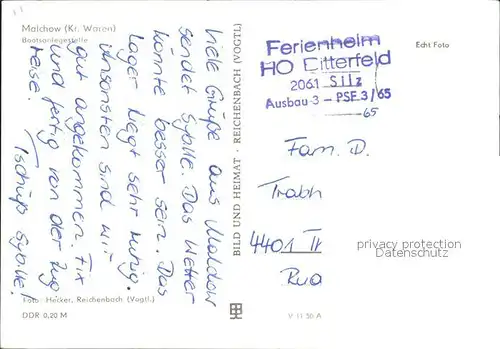 Malchow (Kr. Waren)
Bootsanlegestelle
Viele Grüße aus Malchow
sendet Sybille. Das Wetter
könnte besser sein. Das
Lager liegt sehr ruhig.
Ansonsten sind wir
gut angekommen. Fix
und fertig von der Zug
reise.
Tschüß Sybille!
Foto: Hecker, Reichenbach (Vogtl.)
DDR 0,20 M
BILD UND HEIMAT · REICHENBACH (VOGTL)
Echt Foto
Ferienheim
HO Bitterfeld
2061 Silz
Ausbau 3 - PSF 3/65
65
Fam. D.
4401
privacy protection
Datenschutz
V 11 50 A